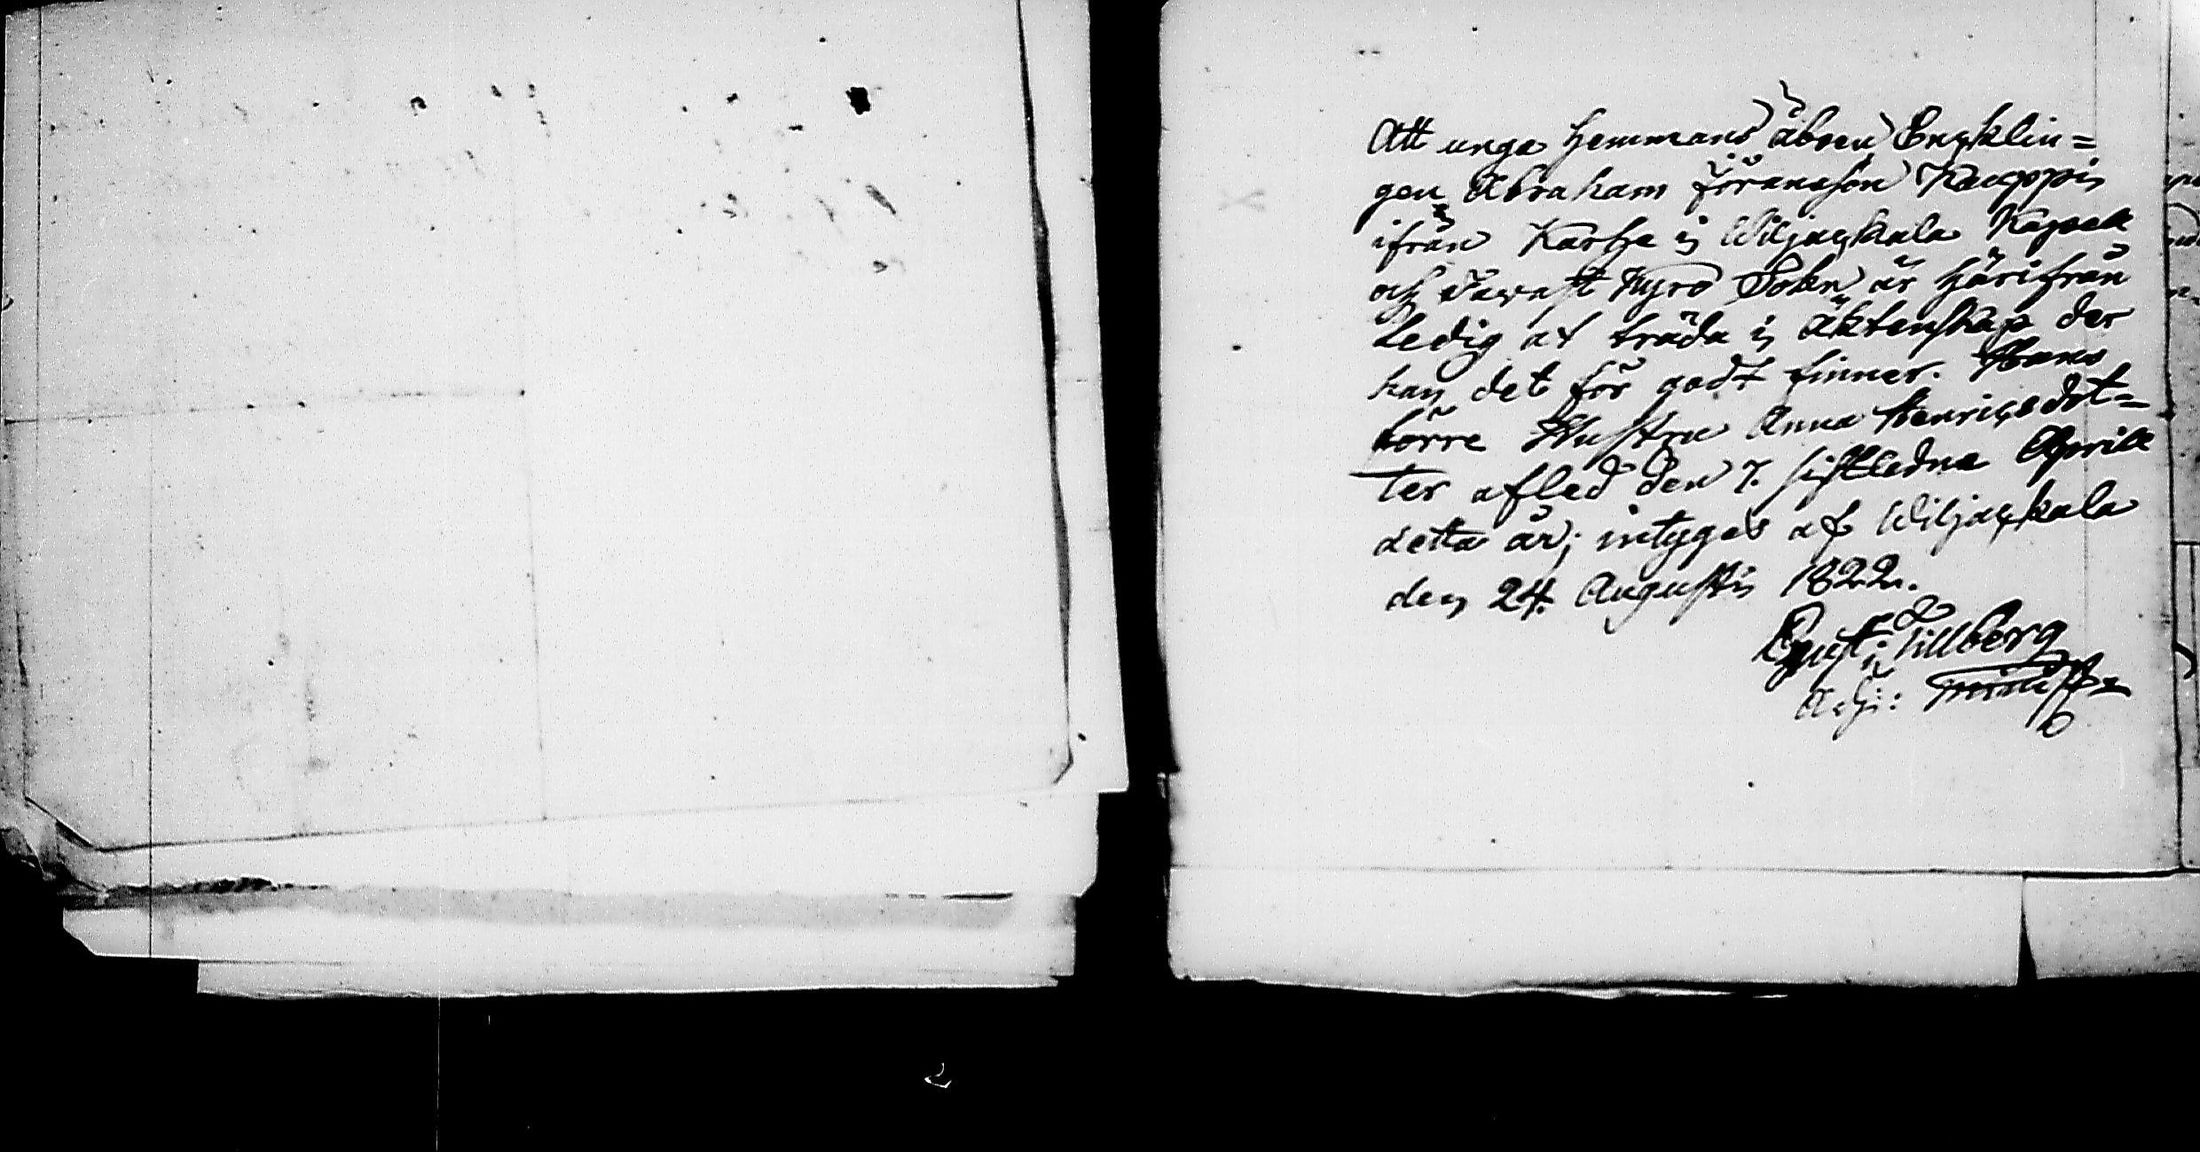 Att unge Hemmans åboen Encklin=
gen Abraham Jöransson Kauppi
ifrån Karhe i Wiljackala Kapell
och Tavast Kyro Sokn är härifrån
Ledig at träda i äktenskap der
han det för godt finner. Hans
förre Hustru Anna Henricsdot=
ter afled den 7. sistledna Aprill
detta år; intygas af Wiljackala
den 24. Augusti 1822.
Gust: Lillberg
Adj: minist